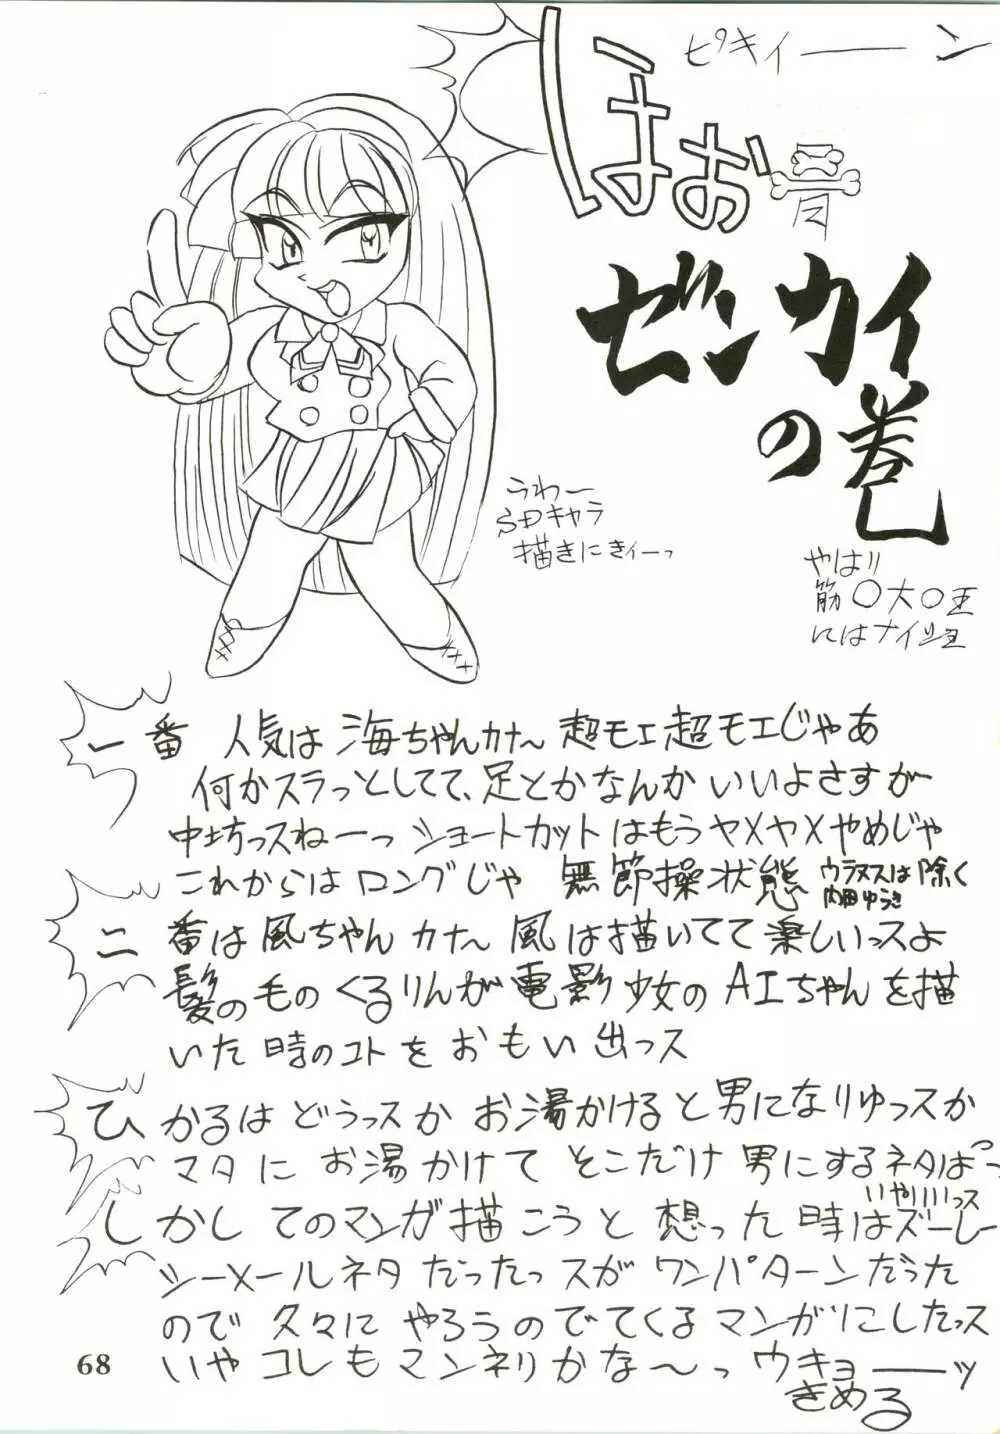 ピキィーーン
ほお骨
ゼンカイ
の巻
うわー
SDキャラ
描きにきィーっ
やはり
筋○大○王
にはナイショ
一番 人気は海ちゃんカナ〜 超モエ超モエじゃあ
何かスラっとしてて、足とかなんかいいよさすが
中坊っスねーっ ショートカットはもうヤメヤメやめじゃ
これからはロングじゃ 無節操状態 ウラヌスは除く
内田ゆうき
二番は風ちゃんカナ〜 風は描いてて楽しいっスよ
髪の毛のくるりんが電影少女のAIちゃんを描
いた時のコトをおもい出っス
ひかるはどうっスか お湯かけると男になりゆっスか
マタにお湯かけてそこだけ男にするネタはっ
いやいいっス
しかしてのマンガ描こうと想った時はズーレー
シーメールネタだったっスがワンパターンだった
ので久々にやろうのでてくるマンガにしたっス
いやコレもマンネリかな〜っ ウキョーーッ
きめる
68